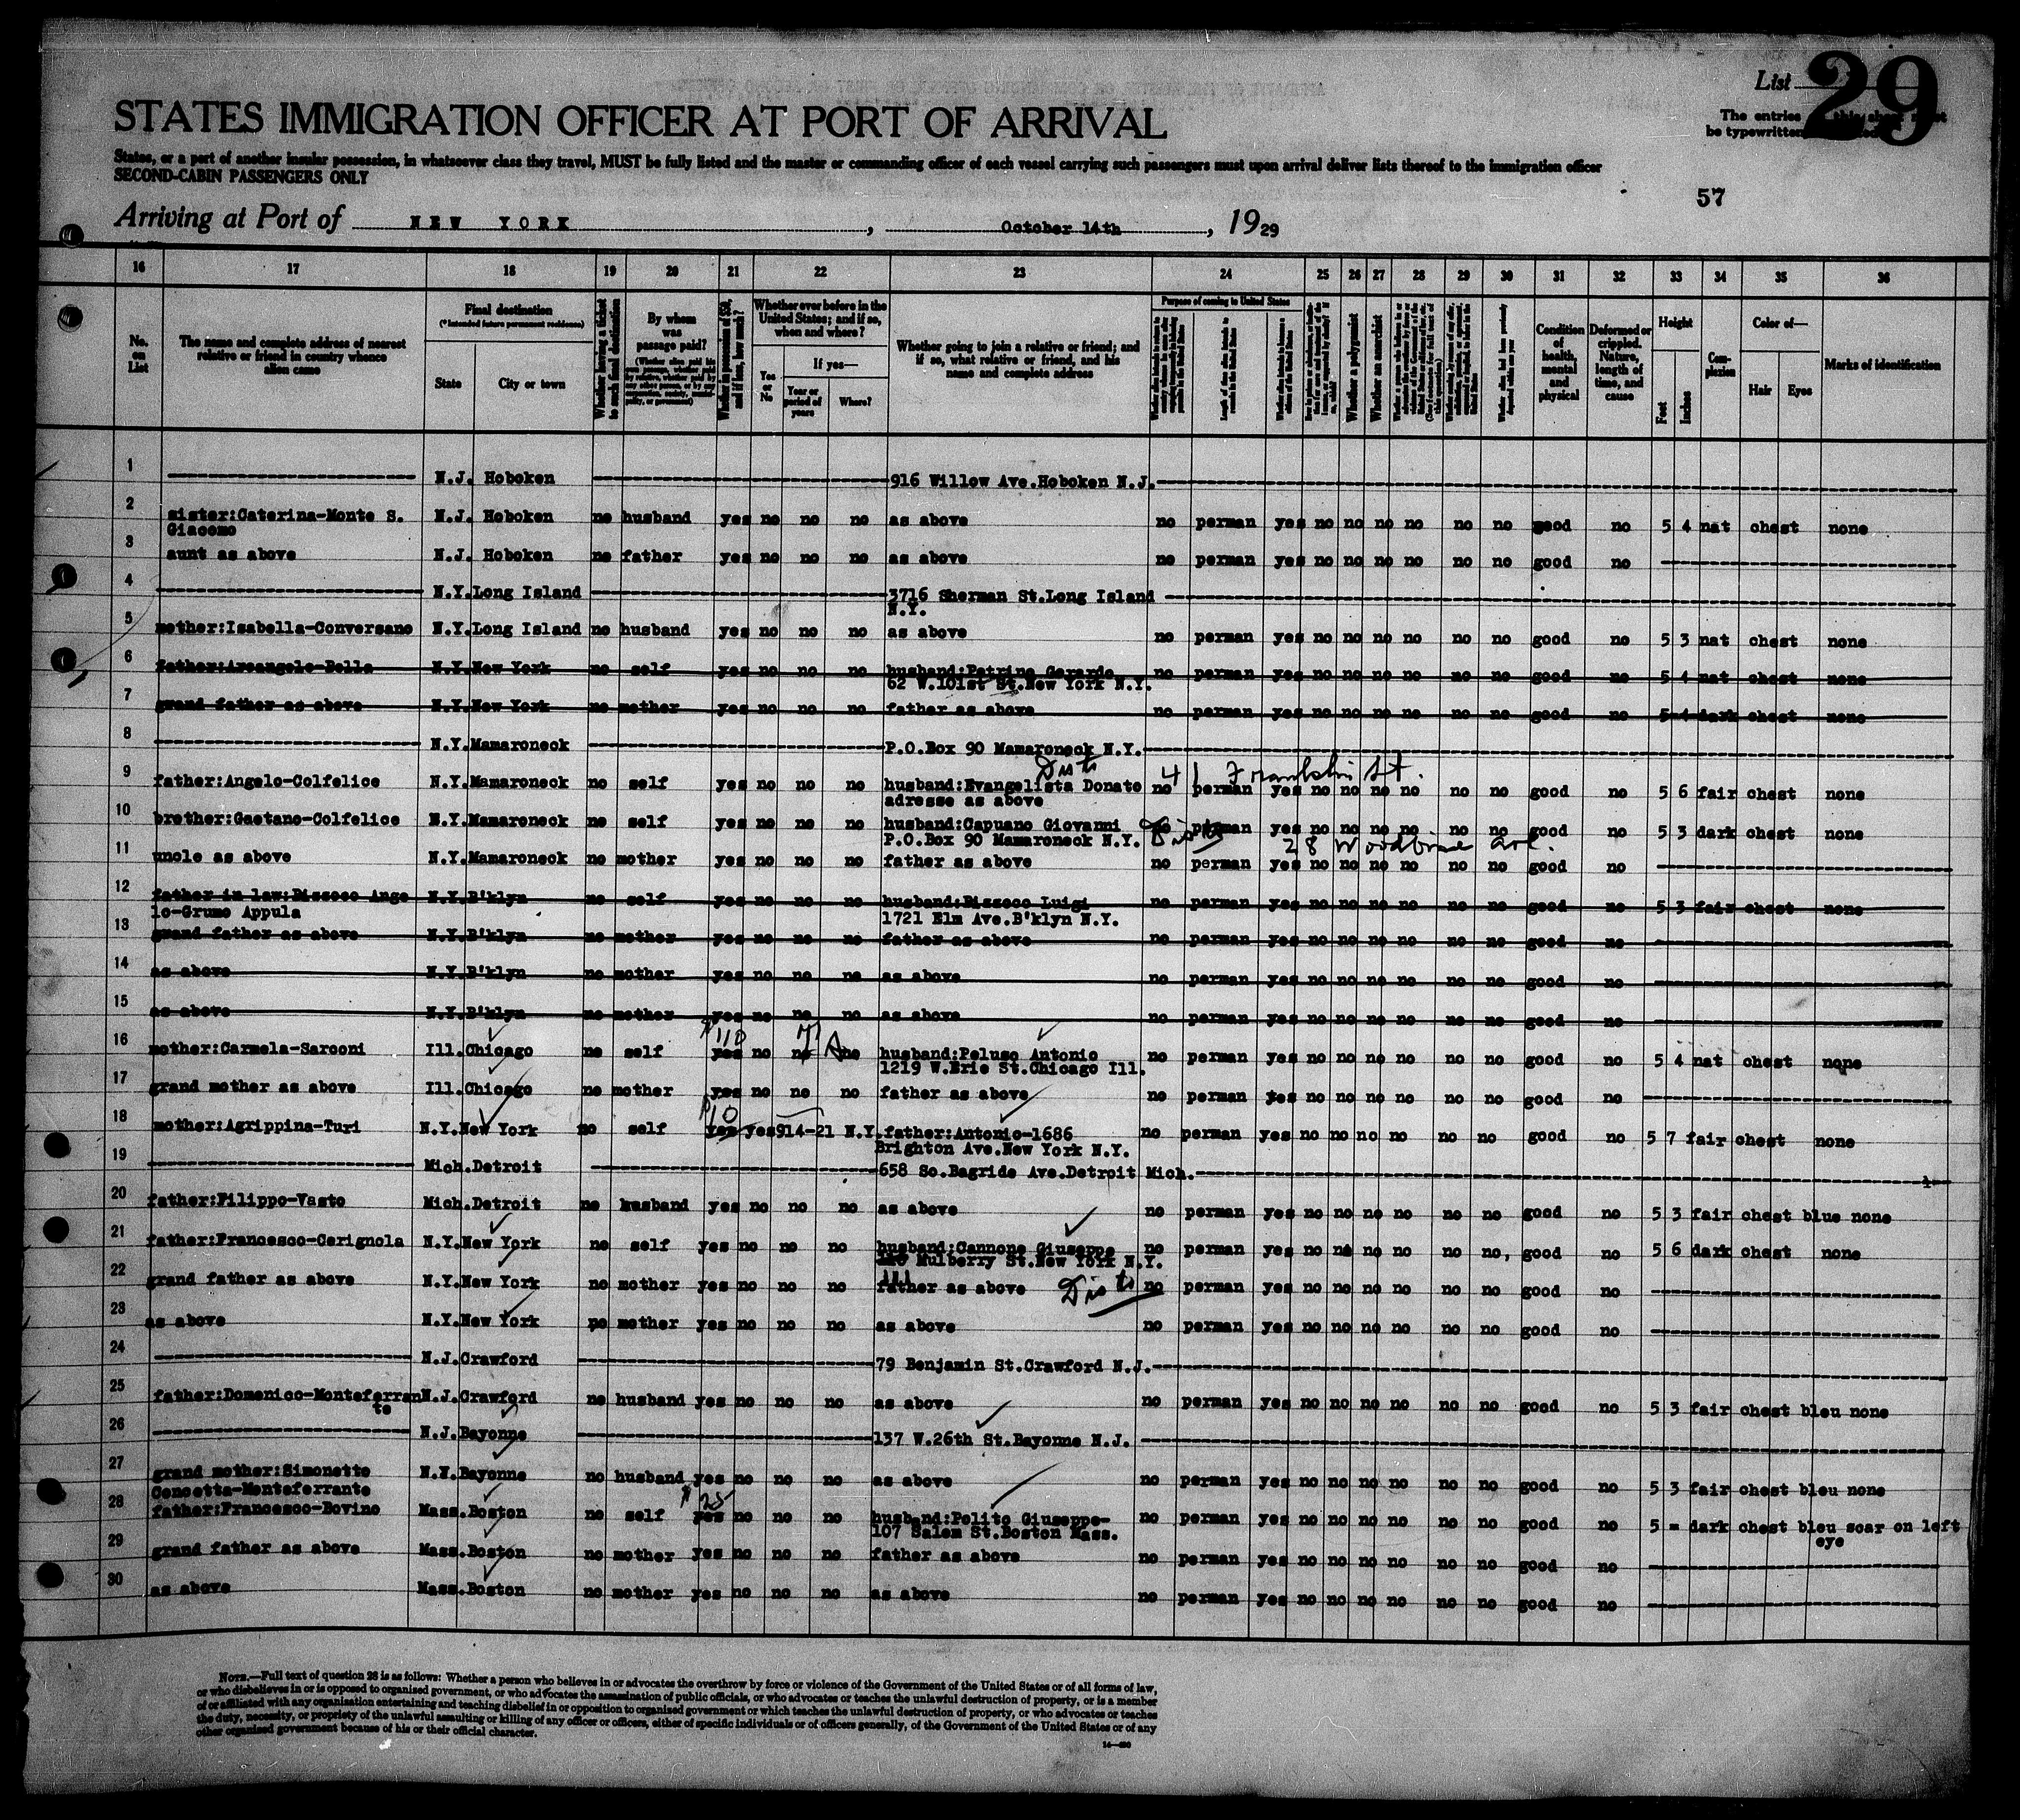 List 29
STATES IMMIGRATION OFFICER AT PORT OF ARRIVAL
The entries
be typewritten
States, or a part of another insular possession, in whatsoever class they travel, MUST be fully listed and the master or commanding officer of each vessel carrying such passengers must upon arrival deliver lists thereof to the immigration officer
SECOND-CABIN PASSENGERS ONLY
57
Arriving at Port of NEW YORK, October 14th, 1929
16 17 18 19 20 21 22 23 24 25 26 27 28 29 30 31 32 33 34 35 36
No. on List
The name and complete address of nearest relative or friend in country whence alien came
Final destination
(*Intended future permanent residence)
State
City or town
Whether having a ticket to such final destination
By whom was passage paid?
Whether in possession of $50, and if less, how much?
Whether ever before in the United States; and if so, when and where?
Yes or No
If yes—
Year or period of years
Where?
Whether going to join a relative or friend; and if so, what relative or friend, and his name and complete address
Purpose of coming to United States
Whether a polygamist
Whether an anarchist
Condition of health, mental and physical
Deformed or crippled. Nature, length of time, and cause
Height
Feet
Inches
Complexion
Color of—
Hair
Eyes
Marks of identification
1 N.J. Hoboken 916 Willow Ave.Hoboken N.J.
2 sister:Caterina-Monte S. Giacomo N.J. Hoboken no husband yes no no no as above no perman yes no no no no no no good no 5 4 nat chest none
3 aunt as above N.J. Hoboken no father yes no no no as above no perman yes no no no no no no good no
4 N.Y. Long Island 3716 Sherman St.Long Island N.Y.
5 mother:Isabella-Conversano N.Y. Long Island no husband yes no no no as above no perman yes no no no no no no good no 5 3 nat chest none
6 father:Arcangelo-Bella N.Y. New York no self yes no no no husband:Petrino Gerardo 62 W.101st St.New York N.Y. no perman yes no no no no no no good no 5 4 nat chest none
7 grand father as above N.Y. New York no mother yes no no no father as above no perman yes no no no no no no good no 5 4 dark chest none
8 N.Y. Mamaroneck P.O.Box 90 Mamaroneck N.Y.
9 father:Angelo-Colfelice N.Y. Mamaroneck no self yes no no no husband:Evangelista Donato adresse as above 41 Franklin St. no perman yes no no no no no no good no 5 6 fair chest none
10 brother:Gaetano-Colfelice N.Y. Mamaroneck no self yes no no no husband:Capuano Giovanni P.O.Box 90 Mamaroneck N.Y. perman yes no no no no no no good no 5 3 dark chest none
28 Woodbine Ave.
11 uncle as above N.Y. Mamaroneck no mother yes no no no father as above no perman yes no no no no no no good no
12 father in law:Bizzoco Angelo-Grumo Appula N.Y. B'klyn no self yes no no no husband:Bizzoco Luigi 1721 Elm Ave.B'klyn N.Y. no perman yes no no no no no no good no 5 3 fair chest none
13 grand father as above N.Y. B'klyn no mother yes no no no father as above no perman yes no no no no no no good no
14 as above N.Y. B'klyn no mother yes no no no as above no perman yes no no no no no no good no
15 as above N.Y. B'klyn no mother yes no no no as above no perman yes no no no no no no good no
16 mother:Carmela-Sarconi Ill. Chicago no self yes $110 no no no husband:Peluso Antonio 1219 W.Erie St.Chicago Ill. no perman yes no no no no no no good no 5 4 nat chest none
17 grand mother as above Ill. Chicago no mother yes no no no father as above no perman yes no no no no no no good no
18 mother:Agrippina-Turi N.Y. New York no self yes $10 yes 914-21 N.Y. father:Antonio-1686 Brighton Ave.New York N.Y. no perman yes no no no no no no good no 5 7 fair chest none
19 Mich. Detroit 658 So.Bagride Ave.Detroit Mich.
20 father:Filippo-Vasto Mich. Detroit no husband yes no no no as above no perman yes no no no no no no good no 5 3 fair chest blue none
21 father:Francesco-Cerignola N.Y. New York no self yes no no no husband:Cannone Giuseppe Mulberry St.New York N.Y. no perman yes no no no no no no, good no 5 6 dark chest none
22 grand father as above N.Y. New York no mother yes no no no father as above no perman yes no no no no no no good no
23 as above N.Y. New York no mother yes no no no as above no perman yes no no no no no no good no
24 N.J. Crawford 79 Benjamin St.Crawford N.J.
25 father:Domenico-Monteferrante N.J. Crawford no husband yes no no no as above no perman yes no no no no no no good no 5 3 fair chest bleu none
26 N.J. Bayonne 137 W.26th St.Bayonne N.J.
27 grand mother:Simonetto Concetta-Monteferrante Bayonne no husband yes no no no as above no perman yes no no no no no no good no 5 3 fair chest bleu none
28 father:Francesco-Bovino Mass. Boston no self yes $25 no no no husband:Polito Giuseppe-107 Salem St.Boston Mass. no perman yes no no no no no no good no 5 = dark chest bleu scar on left eye
29 grand father as above Mass. Boston no mother yes no no no father as above no perman yes no no no no no no good no
30 as above Mass. Boston no mother yes no no no as above no perman yes no no no no no no good no
NOTE.—Full text of question 28 is as follows: Whether a person who believes in or advocates the overthrow by force or violence of the Government of the United States or of all forms of law,
or who disbelieves in or is opposed to organized government, or who advocates the assassination of public officials, or who advocates or teaches the unlawful destruction of property, or is a member
of or affiliated with any organization entertaining and teaching disbelief in or opposition to organized government or which teaches the unlawful destruction of property, or who advocates or teaches
the duty, necessity, or propriety of the unlawful assaulting or killing of any officer or officers, either of specific individuals or of officers generally, of the Government of the United States or of any
other organized government because of his or their official character.